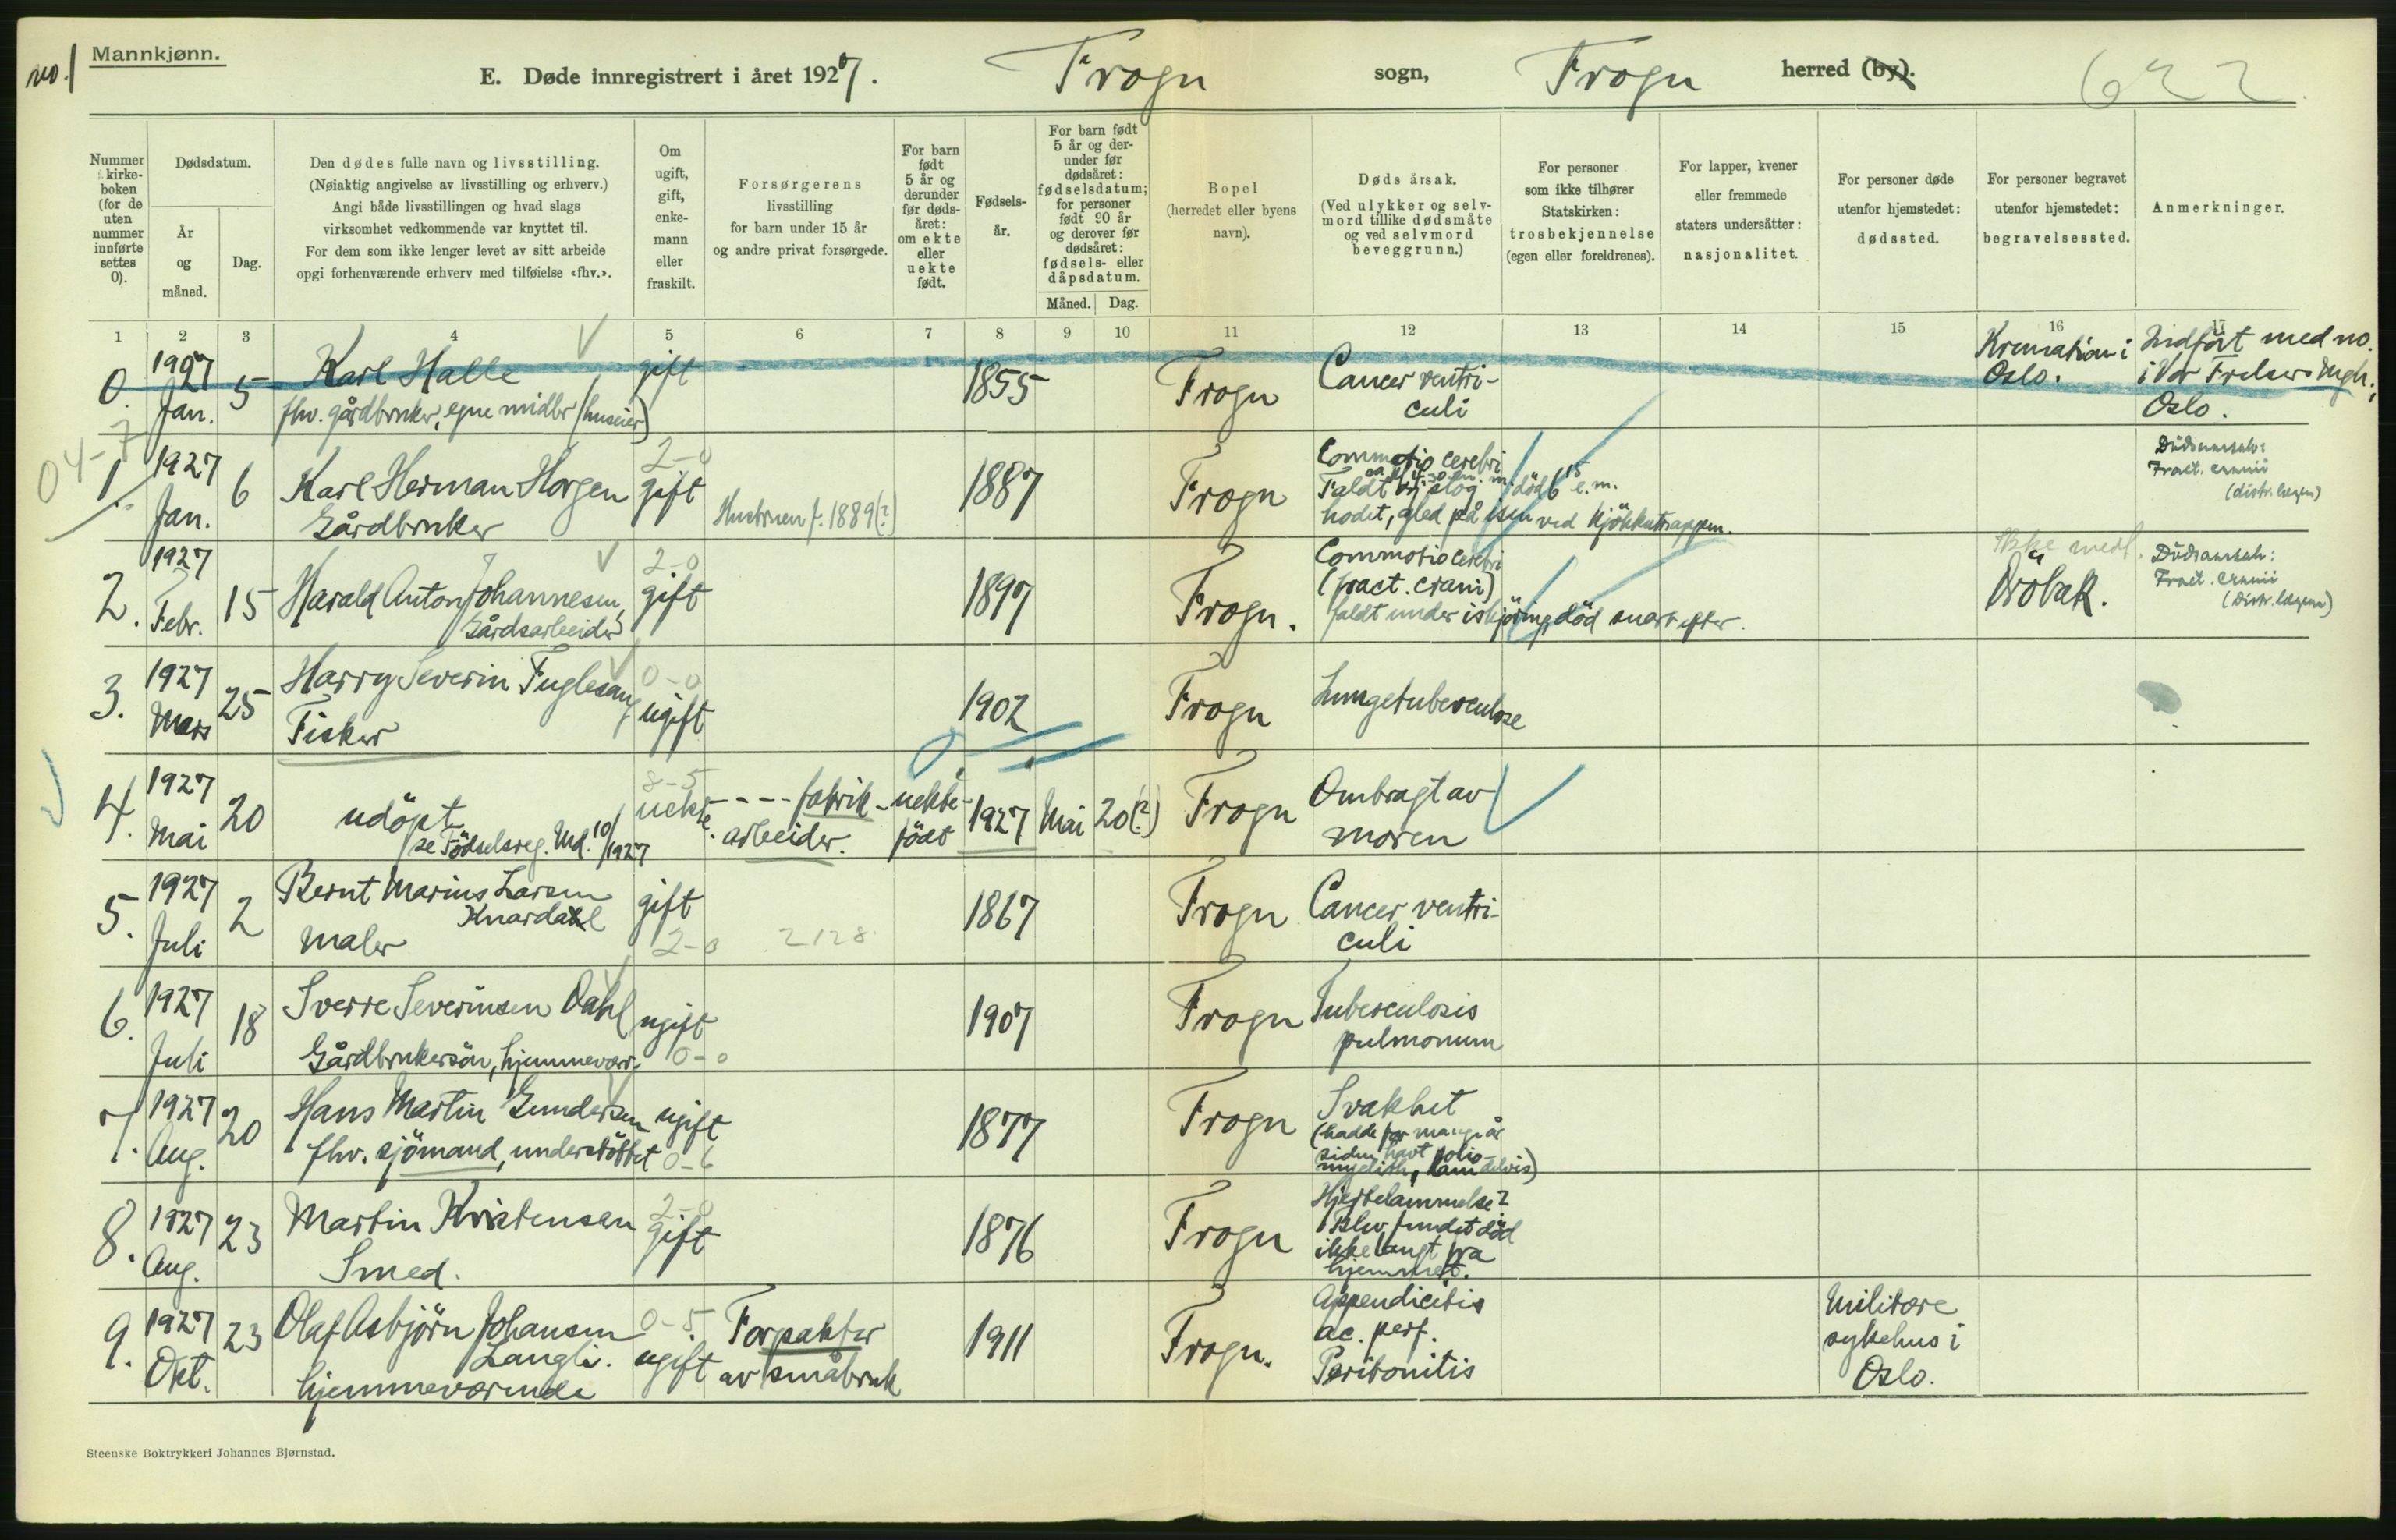 no. 1
Mannkjønn.
E. Døde innregistrert i året 1927. Frogn sogn, Frogn herred (by).
622
Nummer i kirkeboken (for de uten nummer innførte settes 0).
Dødsdatum.
År og måned.
Dag.
Den dødes fulle navn og livsstilling.
(Nøiaktig angivelse av livsstilling og erhverv.)
Angi både livsstillingen og hvad slags
virksomhet vedkommende var knyttet til.
For dem som ikke lenger levet av sitt arbeide
opgi forhenværende erhverv med tilføielse «fhv.».
Om ugift, gift, enkemann eller fraskilt.
Forsørgerens
livsstilling
for barn under 15 år
og andre privat forsørgede.
For barn født 5 år og derunder før dødsåret: om ekte eller uekte født.
Fødselsår.
For barn født 5 år og derunder før dødsåret: fødselsdatum; for personer født 90 år og derover før dødsåret: fødsels- eller dåpsdatum.
Måned. Dag.
Bopel
(herredet eller byens
navn).
Dødsårsak.
(Ved ulykker og selvmord tillike dødsmåte
og ved selvmord
beveggrunn.)
For personer
som ikke tilhører
Statskirken:
trosbekjennelse
(egen eller foreldrenes).
For lapper, kvener
eller fremmede
staters undersåtter:
nasjonalitet.
For personer døde
utenfor hjemstedet:
dødssted.
For personer begravet
utenfor hjemstedet:
begravelsessted.
Anmerkninger.
1 2 3 4 5 6 7 8 9 10 11 12 13 14 15 16 17
0. 1927 Jan. 5 Karl Halle gift 1855 Frogn Cancer ventri-
culi
fhv. gårdbruker, egne midler (huseier)
Kremation i
Oslo.
Indført med no.
i Vor Frelsers Mgh.,
Oslo.
04-7
1. 1927 Jan. 6 Karl Herman Horgen
Gårdbruker
2-0
gift
Hustruen f. 1889(?)
1887 Frogn Commotio cerebri
Faldt og slog
hodet, gled på isen ved kjøkkentrappen.
død 6/5 e.m.
Dødsaarsak:
Fract. cranii
(distr. lægen)
2. 1927 Febr. 15 Harald Anton Johannesen,
Gårdsarbeider
2-0
gift
1897 Frogn. Commotio cerebri
(fract. crani)
faldt under iskjøring, død snart efter.
Ikke medt.
Drøbak.
Dødsaarsak:
Fract. cranii
(distr. lægen)
3. 1927 Mars 25 Harry Severin Fuglesang
Fisker
0-0
ugift
1902 Frogn Lungetuberculose
4. 1927 Mai 20 udöpt
se Födselsreg. Md. 10/1927
8-5
uekte.
---- fabrik-
arbeider.
uekte-
födt
1927 Mai 20(?) Frogn Ombragt av
moren
5. 1927 Juli 2 Bernt Marius Larsen
Knardahl
Maler
gift
2-0
2128
1867 Frogn Cancer ventri-
culi
6. 1927 Juli 18 Sverre Severinsen Dahl
Gårdbrukersön, hjemmevær.
ugift
0-0
1907 Frogn Tuberculosis
pulmonum
7. 1927 Aug. 20 Hans Martin Gundersen
fhv. sjömand, understöttet
ugift
0-6
1877 Frogn Svakhet
(hadde for mange år
siden havt polio-
myelitis, lam delvis)
8. 1927 Aug. 23 Martin Kristensen
Smed.
2-0
gift
1876 Frogn Hjertelammelse?
Blev fundet död
ikke langt fra
hjemmet.
9. 1927 Okt. 23 Olaf Asbjörn Johansen
Langli.
hjemmeværende
0-5
ugift
Forpakter
av småbruk
1911 Frogn. Appendicitis
ac. perf.
Peritonitis
Militære
sykehus i
Oslo.
Steenske Boktrykkeri Johannes Bjørnstad.